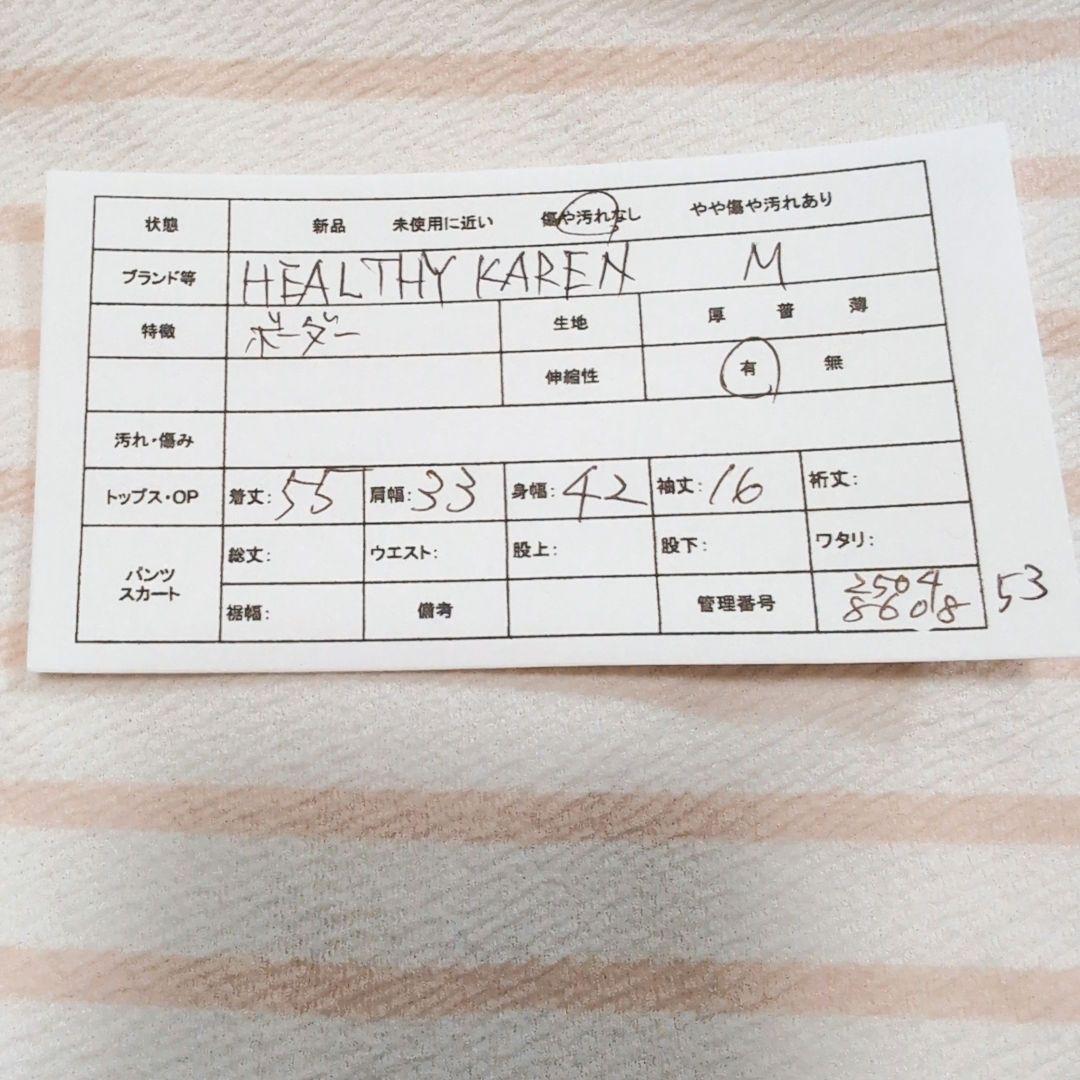 状態 新品 未使用に近い 傷や汚れなし やや傷や汚れあり
ブランド等 HEALTHY KAREN M
特徴 ボーダー 生地 厚 普 薄
伸縮性 有 無
汚れ・傷み
トップス・OP 着丈: 55 肩幅: 33 身幅: 42 袖丈: 16 裄丈:
パンツ スカート 総丈: ウエスト: 股上: 股下: ワタリ:
裾幅: 備考 管理番号 2504
8608 53